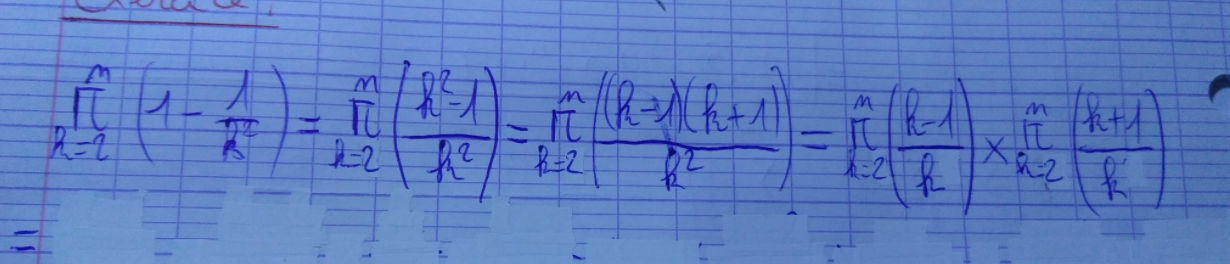 Exercice :
\prod_{k=2}^{n} \left(1 - \frac{1}{k^2}\right) = \prod_{k=2}^{n} \left(\frac{k^2-1}{k^2}\right) = \prod_{k=2}^{n} \left(\frac{(k-1)(k+1)}{k^2}\right) = \prod_{k=2}^{n} \left(\frac{k-1}{k}\right) \times \prod_{k=2}^{n} \left(\frac{k+1}{k}\right)
=